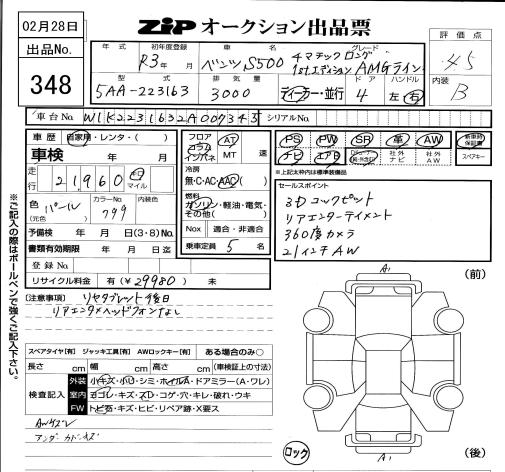 02月28日
ZIP オークション出品票
出品No.
348
評価点
4.5
内装
B
年式 初年度登録 車名 グレード
R3年 月 ベンツ S500 4マチックロング 1stエディション AMGライン
型式 排気量 ドア ハンドル
5AA-223163 3000 ディーラー・並行 4 左 右
車台No. W1K2231632A007345 シリアルNo.
車歴 自家用・レンタ・( )
車検 年 月
走行 21,960 km マイル
色(元色) パール カラーNo. 799 内装色
予備検 年 月 日(3・8)No.
書類有効期限 年 月 日迄
登録No.
リサイクル料金 有(¥29980) 未
フロア コラム インパネ AT MT 速
冷房 無・C・AC・AAC
燃料 ガソリン・軽油・電気・その他( )
Nox 適合・非適合
乗車定員 5 名
PS PW SR 革 AW 新車時保証書
ナビ エアB 社外ナビ 社外AW スペアキー
※上記太枠内は標準装備品
セールスポイント
3Dコックピット
リアエンターテイメント
360度カメラ
21インチAW
※ご記入の際はボールペンで強くご記入下さい。
(注意事項) リヤタブレット後日
リアエンタメヘッドフォンなし
スペアタイヤ[有] ジャッキ工具[有] AWロックキー[有] ある場合のみ○
長さ cm 幅 cm 高さ cm (車検証上の寸法)
検査記入
外装 小キズ・小U・シミ・ホイルA・ドアミラー(A・ワレ)
室内 ヨゴレ・キズ・スD・コゲ・穴・キレ・破れ・ウキ
FW トビ石・キズ・ヒビ・リペア跡・X要ス
アンダーカバーキズ
A1
(前)
ロック
A1
(後)